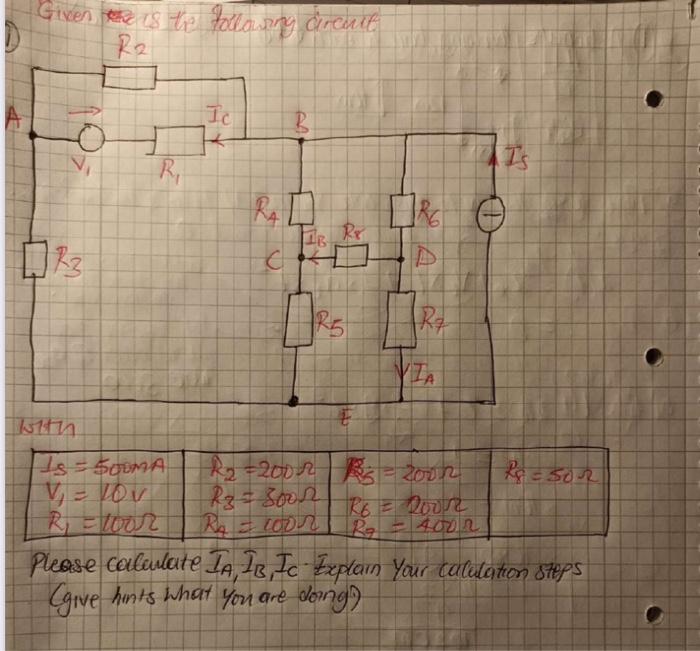 Given is the following circuit
1)
R2
A
Ic
B
Is
V1
R1
R4
R6
IB
R8
R3
C
D
R5
R7
IA
E
with
Is = 500mA
V1 = 10V
R1 = 100Ω
R2 = 200Ω
R3 = 300Ω
R4 = 100Ω
R5 = 200Ω
R6 = 200Ω
R7 = 400Ω
R8 = 50Ω
Please calculate IA, IB, Ic. Explain your calculation steps
(give hints what you are doing)